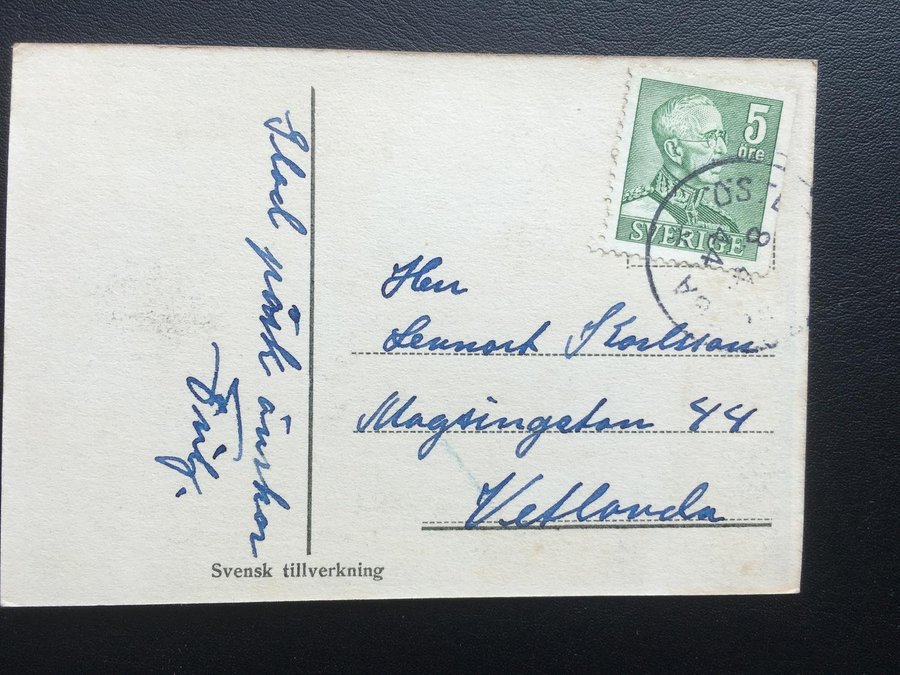 Glad påsk önskar
5
öre
SVERIGE
Herr
Lennart Karlsson
Magasinsgatan 44
Vetlanda
Svensk tillverkning